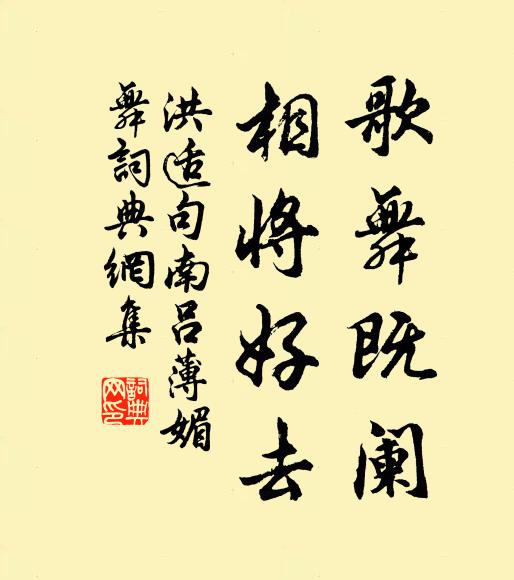 歌舞既阑
相将好去
洪适句南吕薄媚
舞詞典網集
詞典网印